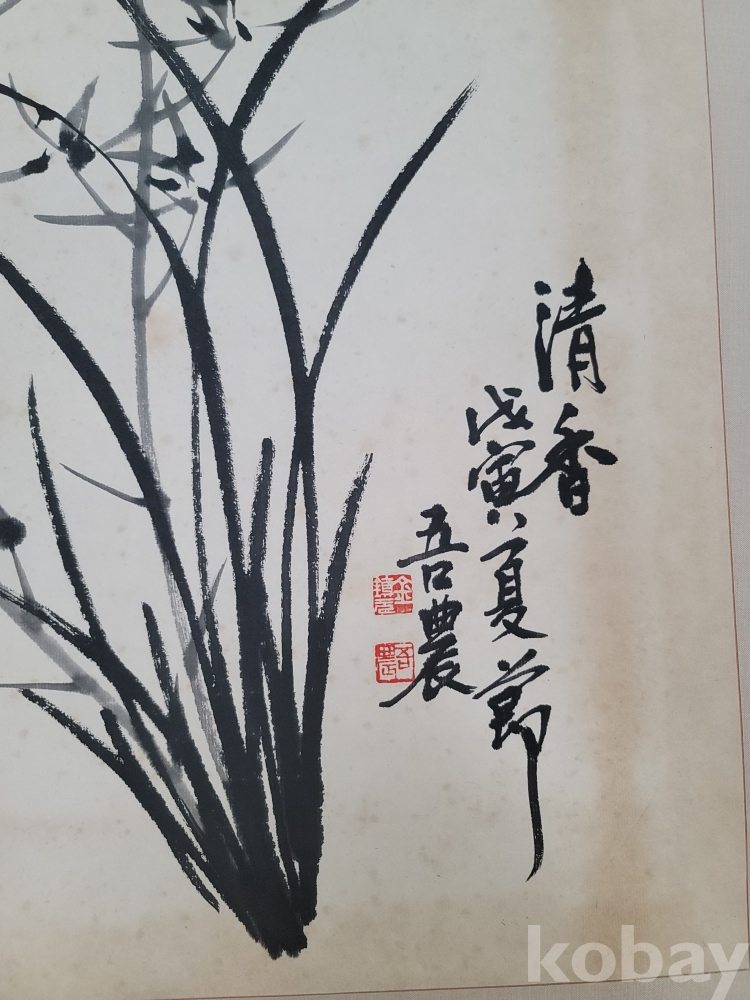 清香
戊寅夏節
吾農
吾農
kobay